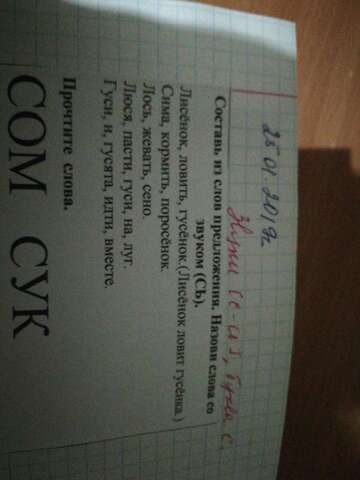 25.01.2019г.
Звуки (с-сь), Буква С.
Составь из слов предложения. Назови слова со
звуком (СЬ).
Лисёнок, ловить, гусёнок.(Лисёнок ловит гусёнка.)
Сима, кормить, поросёнок.
Лось, жевать, сено.
Люся, пасти, гуси, на, луг.
Гуси, и, гусята, идти, вместе.
Прочтите слова.
СОМ СУК